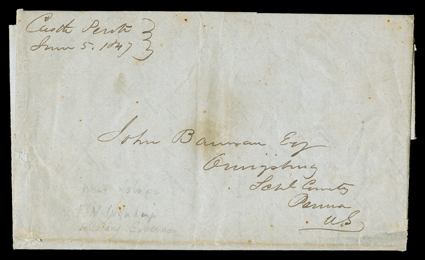 Castle Perote
June 5. 1847
John Bannan Esq
Orwigsburg
Schl County
Penna
U.S